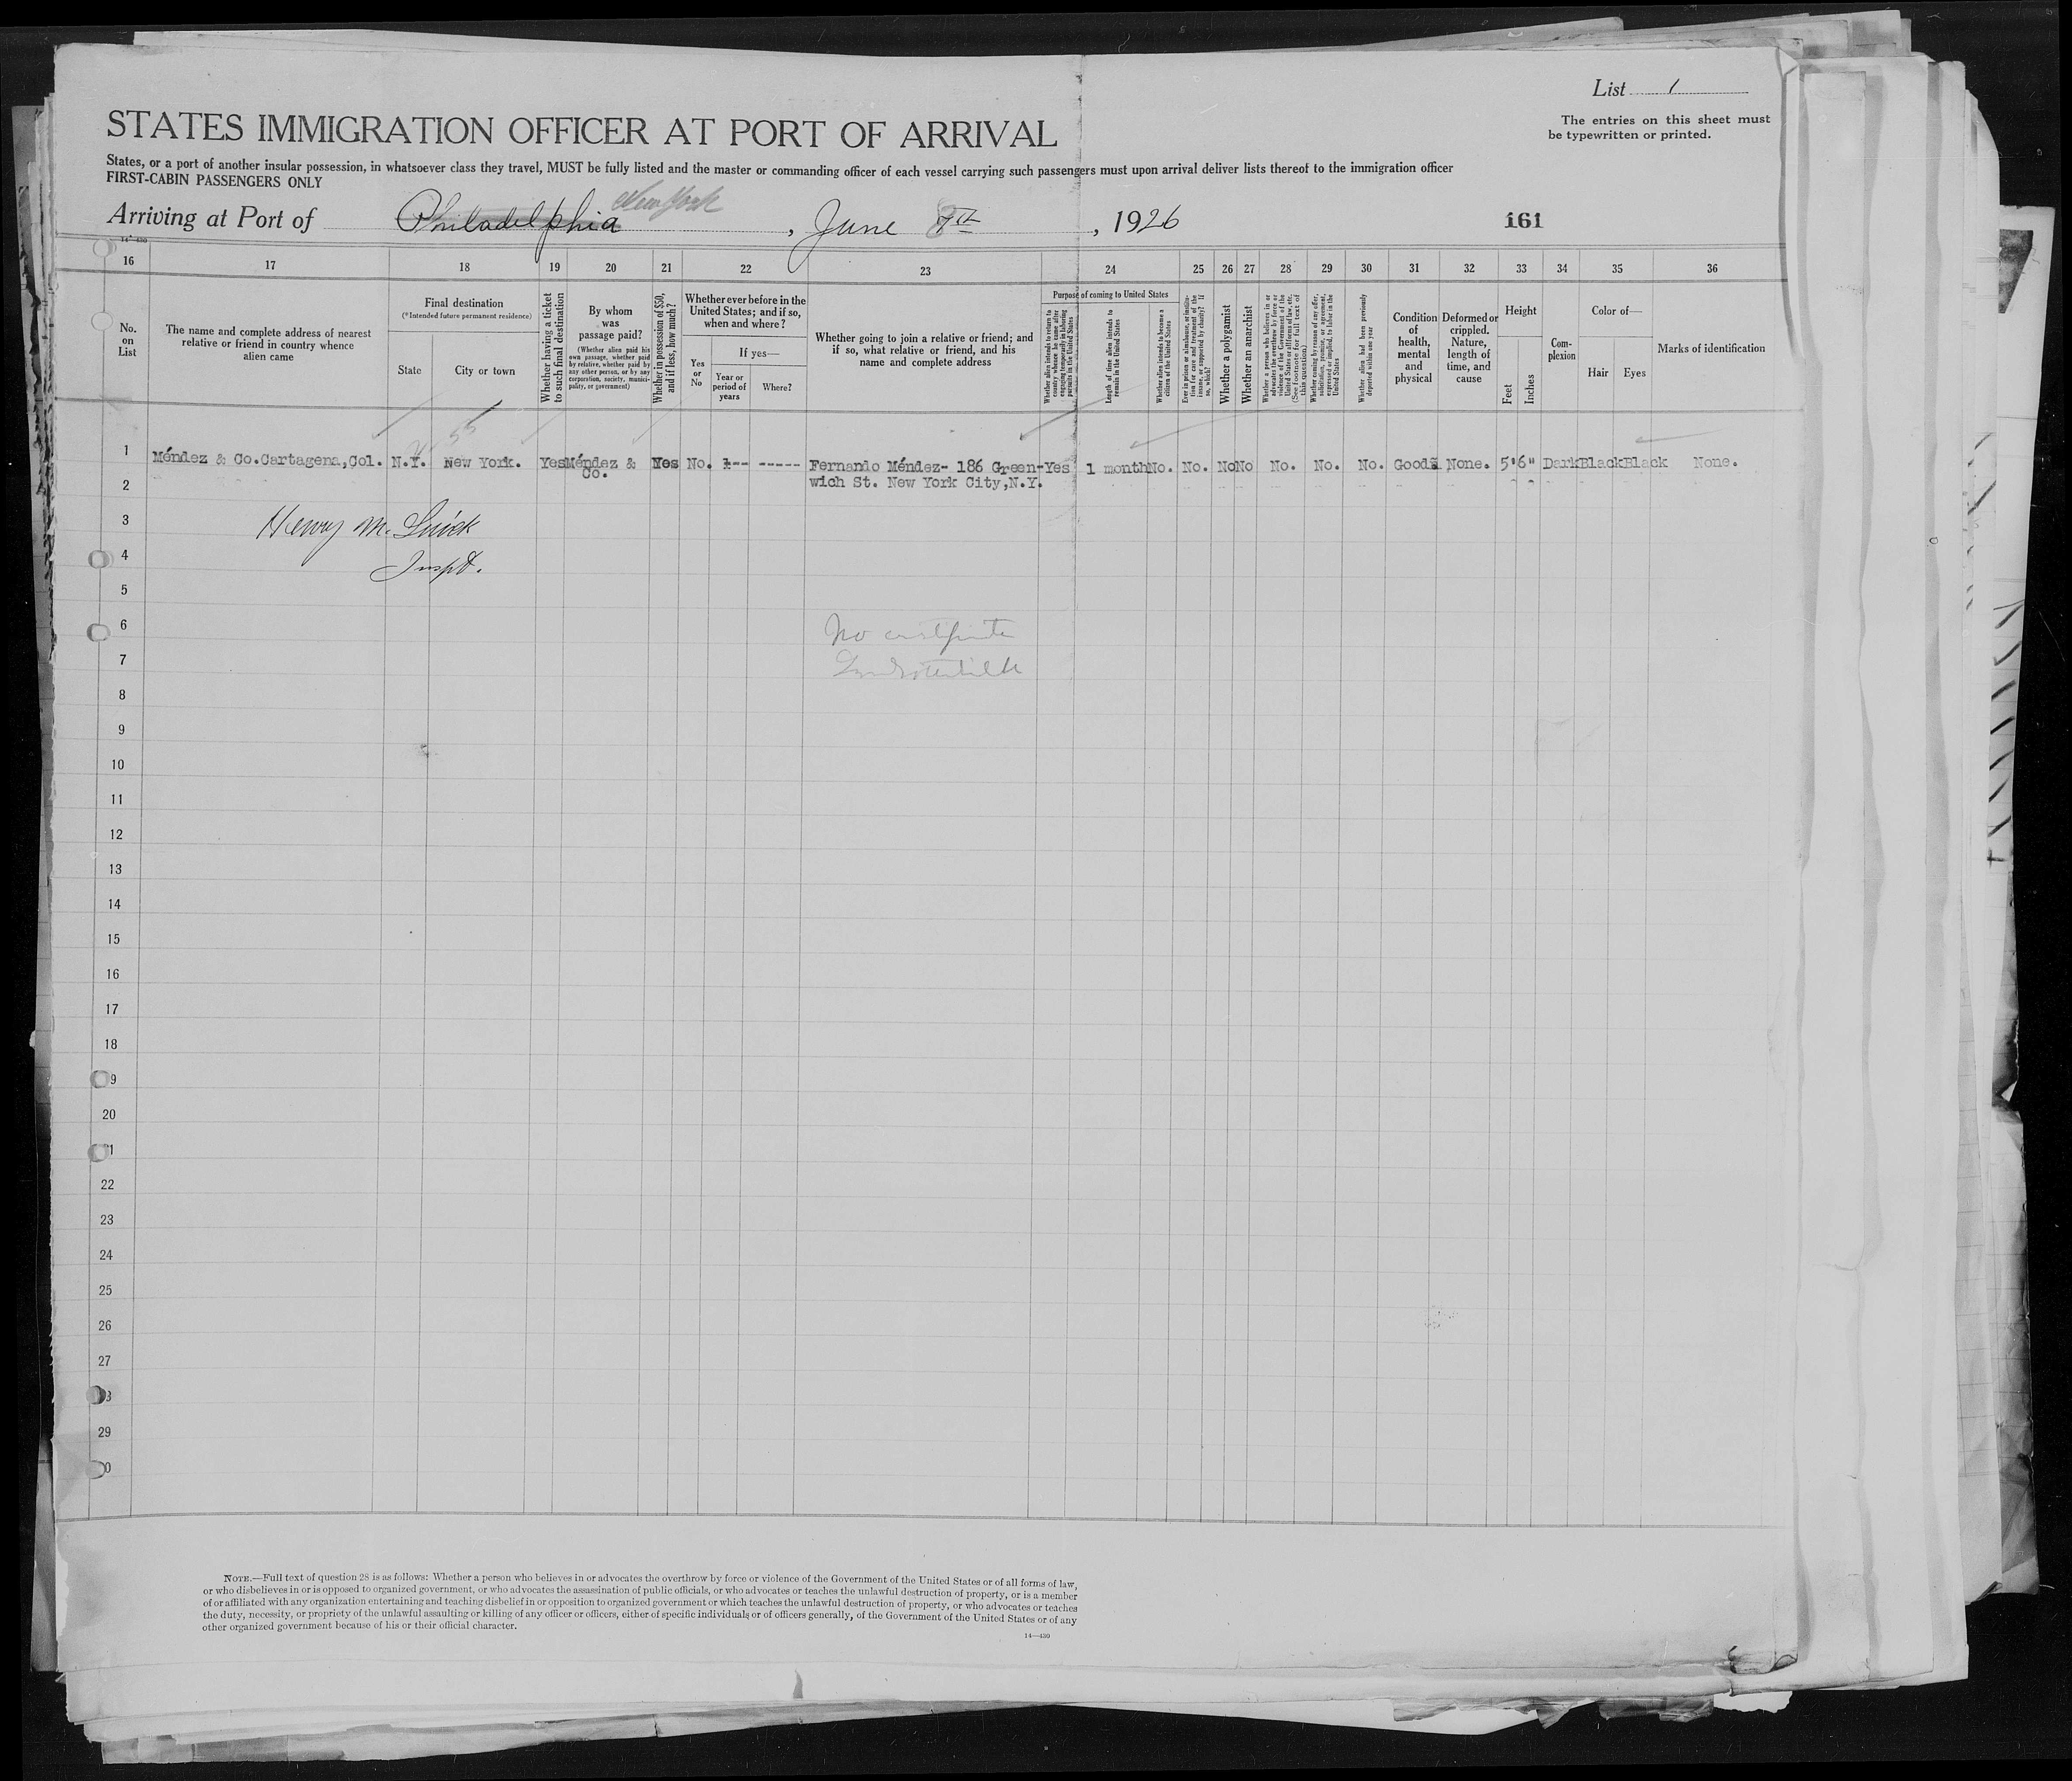 List 1
STATES IMMIGRATION OFFICER AT PORT OF ARRIVAL
The entries on this sheet must
be typewritten or printed.
States, or a port of another insular possession, in whatsoever class they travel, MUST be fully listed and the master or commanding officer of each vessel carrying such passengers must upon arrival deliver lists thereof to the immigration officer
FIRST-CABIN PASSENGERS ONLY
New York
Arriving at Port of Philadelphia, June 8th, 1926
161
14-430
16 17 18 19 20 21 22 23 24 25 26 27 28 29 30 31 32 33 34 35 36
No. on List
The name and complete address of nearest relative or friend in country whence alien came
Final destination
(*Intended future permanent residence)
State
City or town
Whether having a ticket to such final destination
By whom was passage paid?
(Whether alien paid his own passage, whether paid by relative, whether paid by any other person, or by any corporation, society, municipality, or government)
Whether in possession of $50, and if less, how much?
Whether ever before in the United States; and if so, when and where?
Yes or No
If yes—
Year or period of years
Where?
Whether going to join a relative or friend; and if so, what relative or friend, and his name and complete address
Purpose of coming to United States
Whether alien intends to return to country whence he came after engaging temporarily in laboring pursuits in the United States
Length of time alien intends to remain in the United States
Whether alien intends to become a citizen of the United States
Ever in prison or almshouse, or institution for care and treatment of the insane, or supported by charity? If so, which?
Whether a polygamist
Whether an anarchist
Whether a person who believes in or advocates the overthrow by force or violence of the Government of the United States or all forms of law, etc. (See footnote for full text of this question)
Whether coming by reason of any offer, solicitation, promise, or agreement, expressed or implied, to labor in the United States
Whether alien had been previously deported within one year
Condition of health, mental and physical
Deformed or crippled. Nature, length of time, and cause
Height
Feet
Inches
Com-plexion
Color of—
Hair
Eyes
Marks of identification
1 Méndez & Co.Cartagena,Col. N.Y. New York. Yes Méndez & Co. Yes No. --- ----- Fernando Méndez- 186 Green- Yes 1 month No. No. No No No. No. No. Good None. 5'6" Dark Black Black None.
2 wich St. New York City,N.Y.
3 Henry M.
4 Inspt.
5
6 No certificate
7
8
9
10
11
12
13
14
15
16
17
18
9
20
1
22
23
24
25
26
27
3
29
0
NOTE.—Full text of question 28 is as follows: Whether a person who believes in or advocates the overthrow by force or violence of the Government of the United States or of all forms of law,
or who disbelieves in or is opposed to organized government, or who advocates the assassination of public officials, or who advocates or teaches the unlawful destruction of property, or is a member
of or affiliated with any organization entertaining and teaching disbelief in or opposition to organized government or which teaches the unlawful destruction of property, or who advocates or teaches
the duty, necessity, or propriety of the unlawful assaulting or killing of any officer or officers, either of specific individuals or of officers generally, of the Government of the United States or of any
other organized government because of his or their official character.
14—430